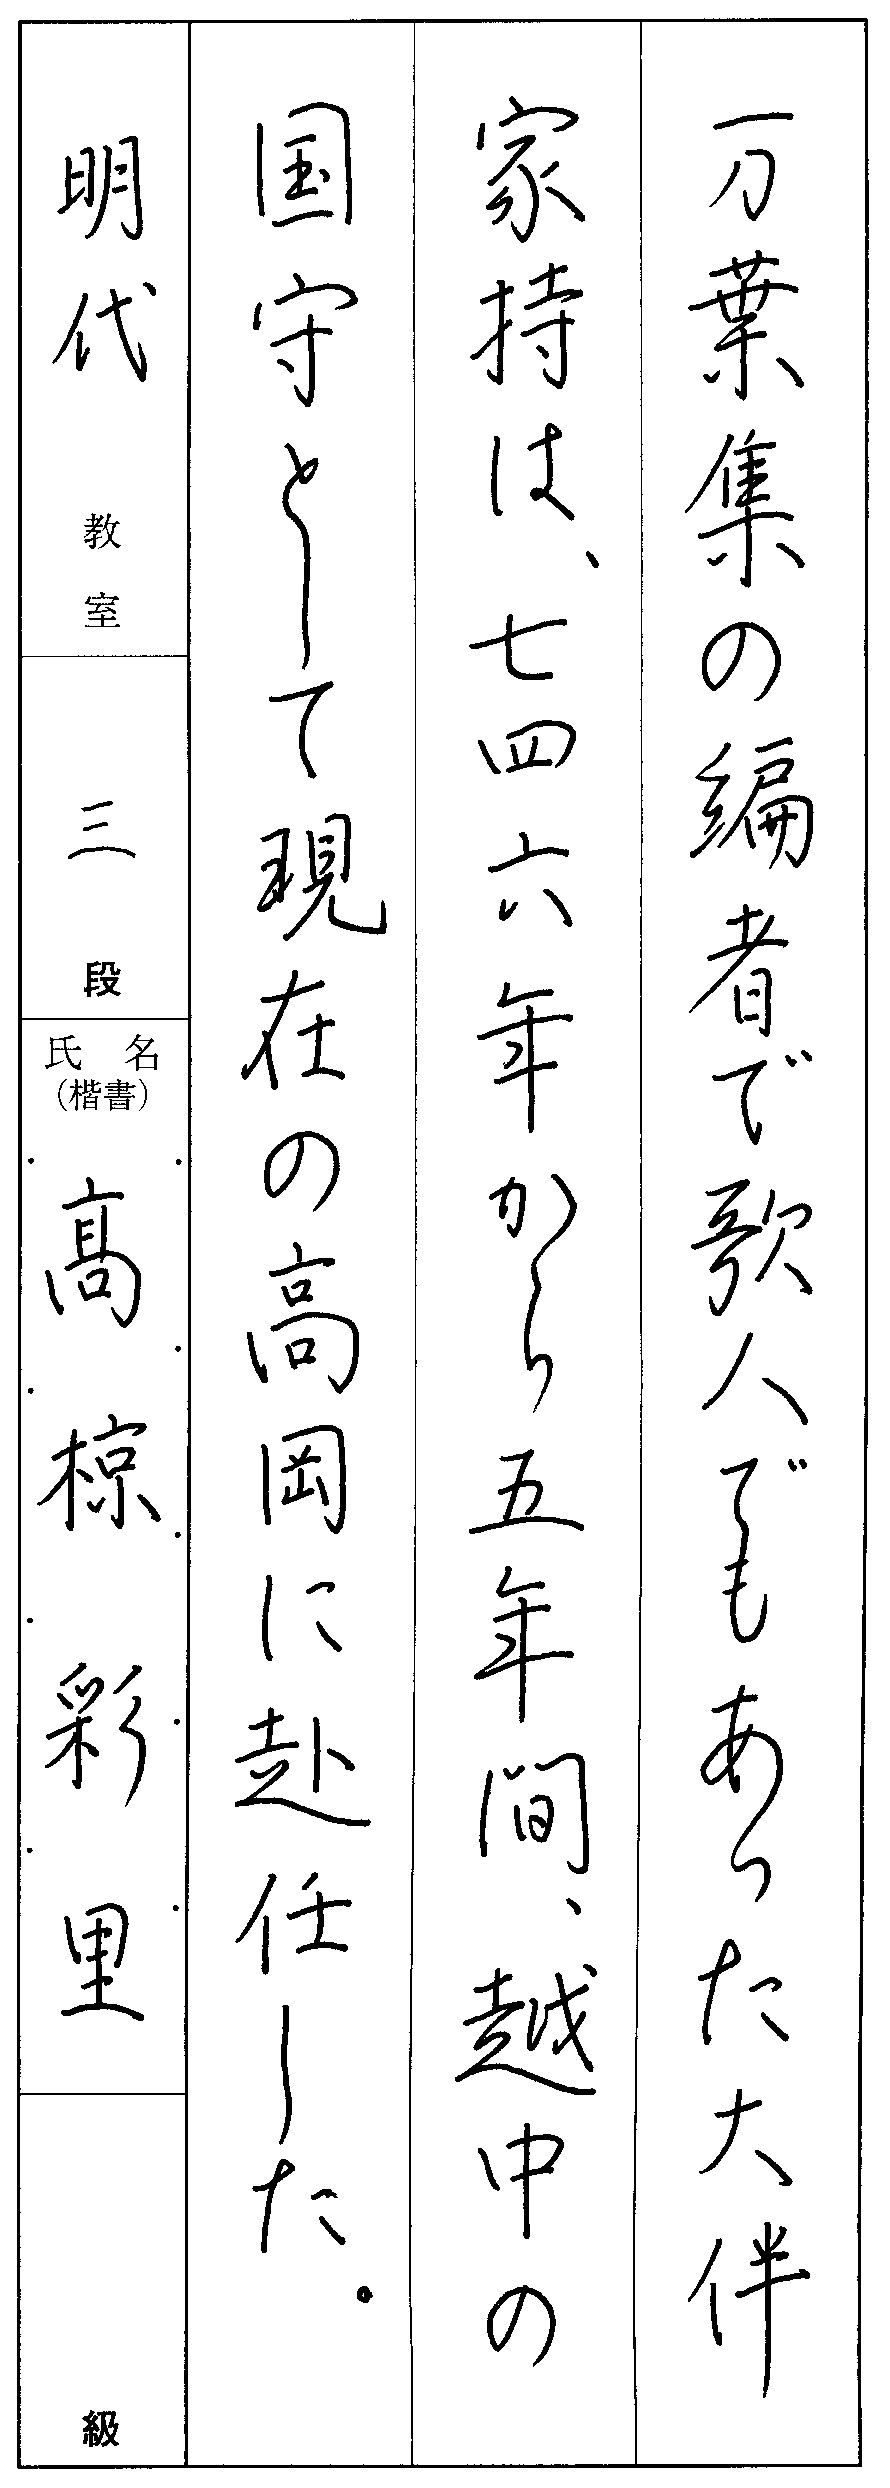 万葉集の編者で歌人でもあった大伴
家持は、七四六年から五年間、越中の
国守として現在の高岡に赴任した。
明代教室
三段
氏名
(楷書)
髙椋彩里
級